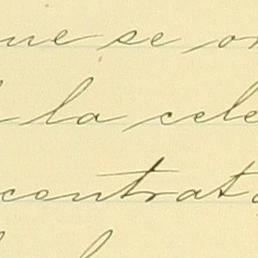 que se o
la cele
contrata